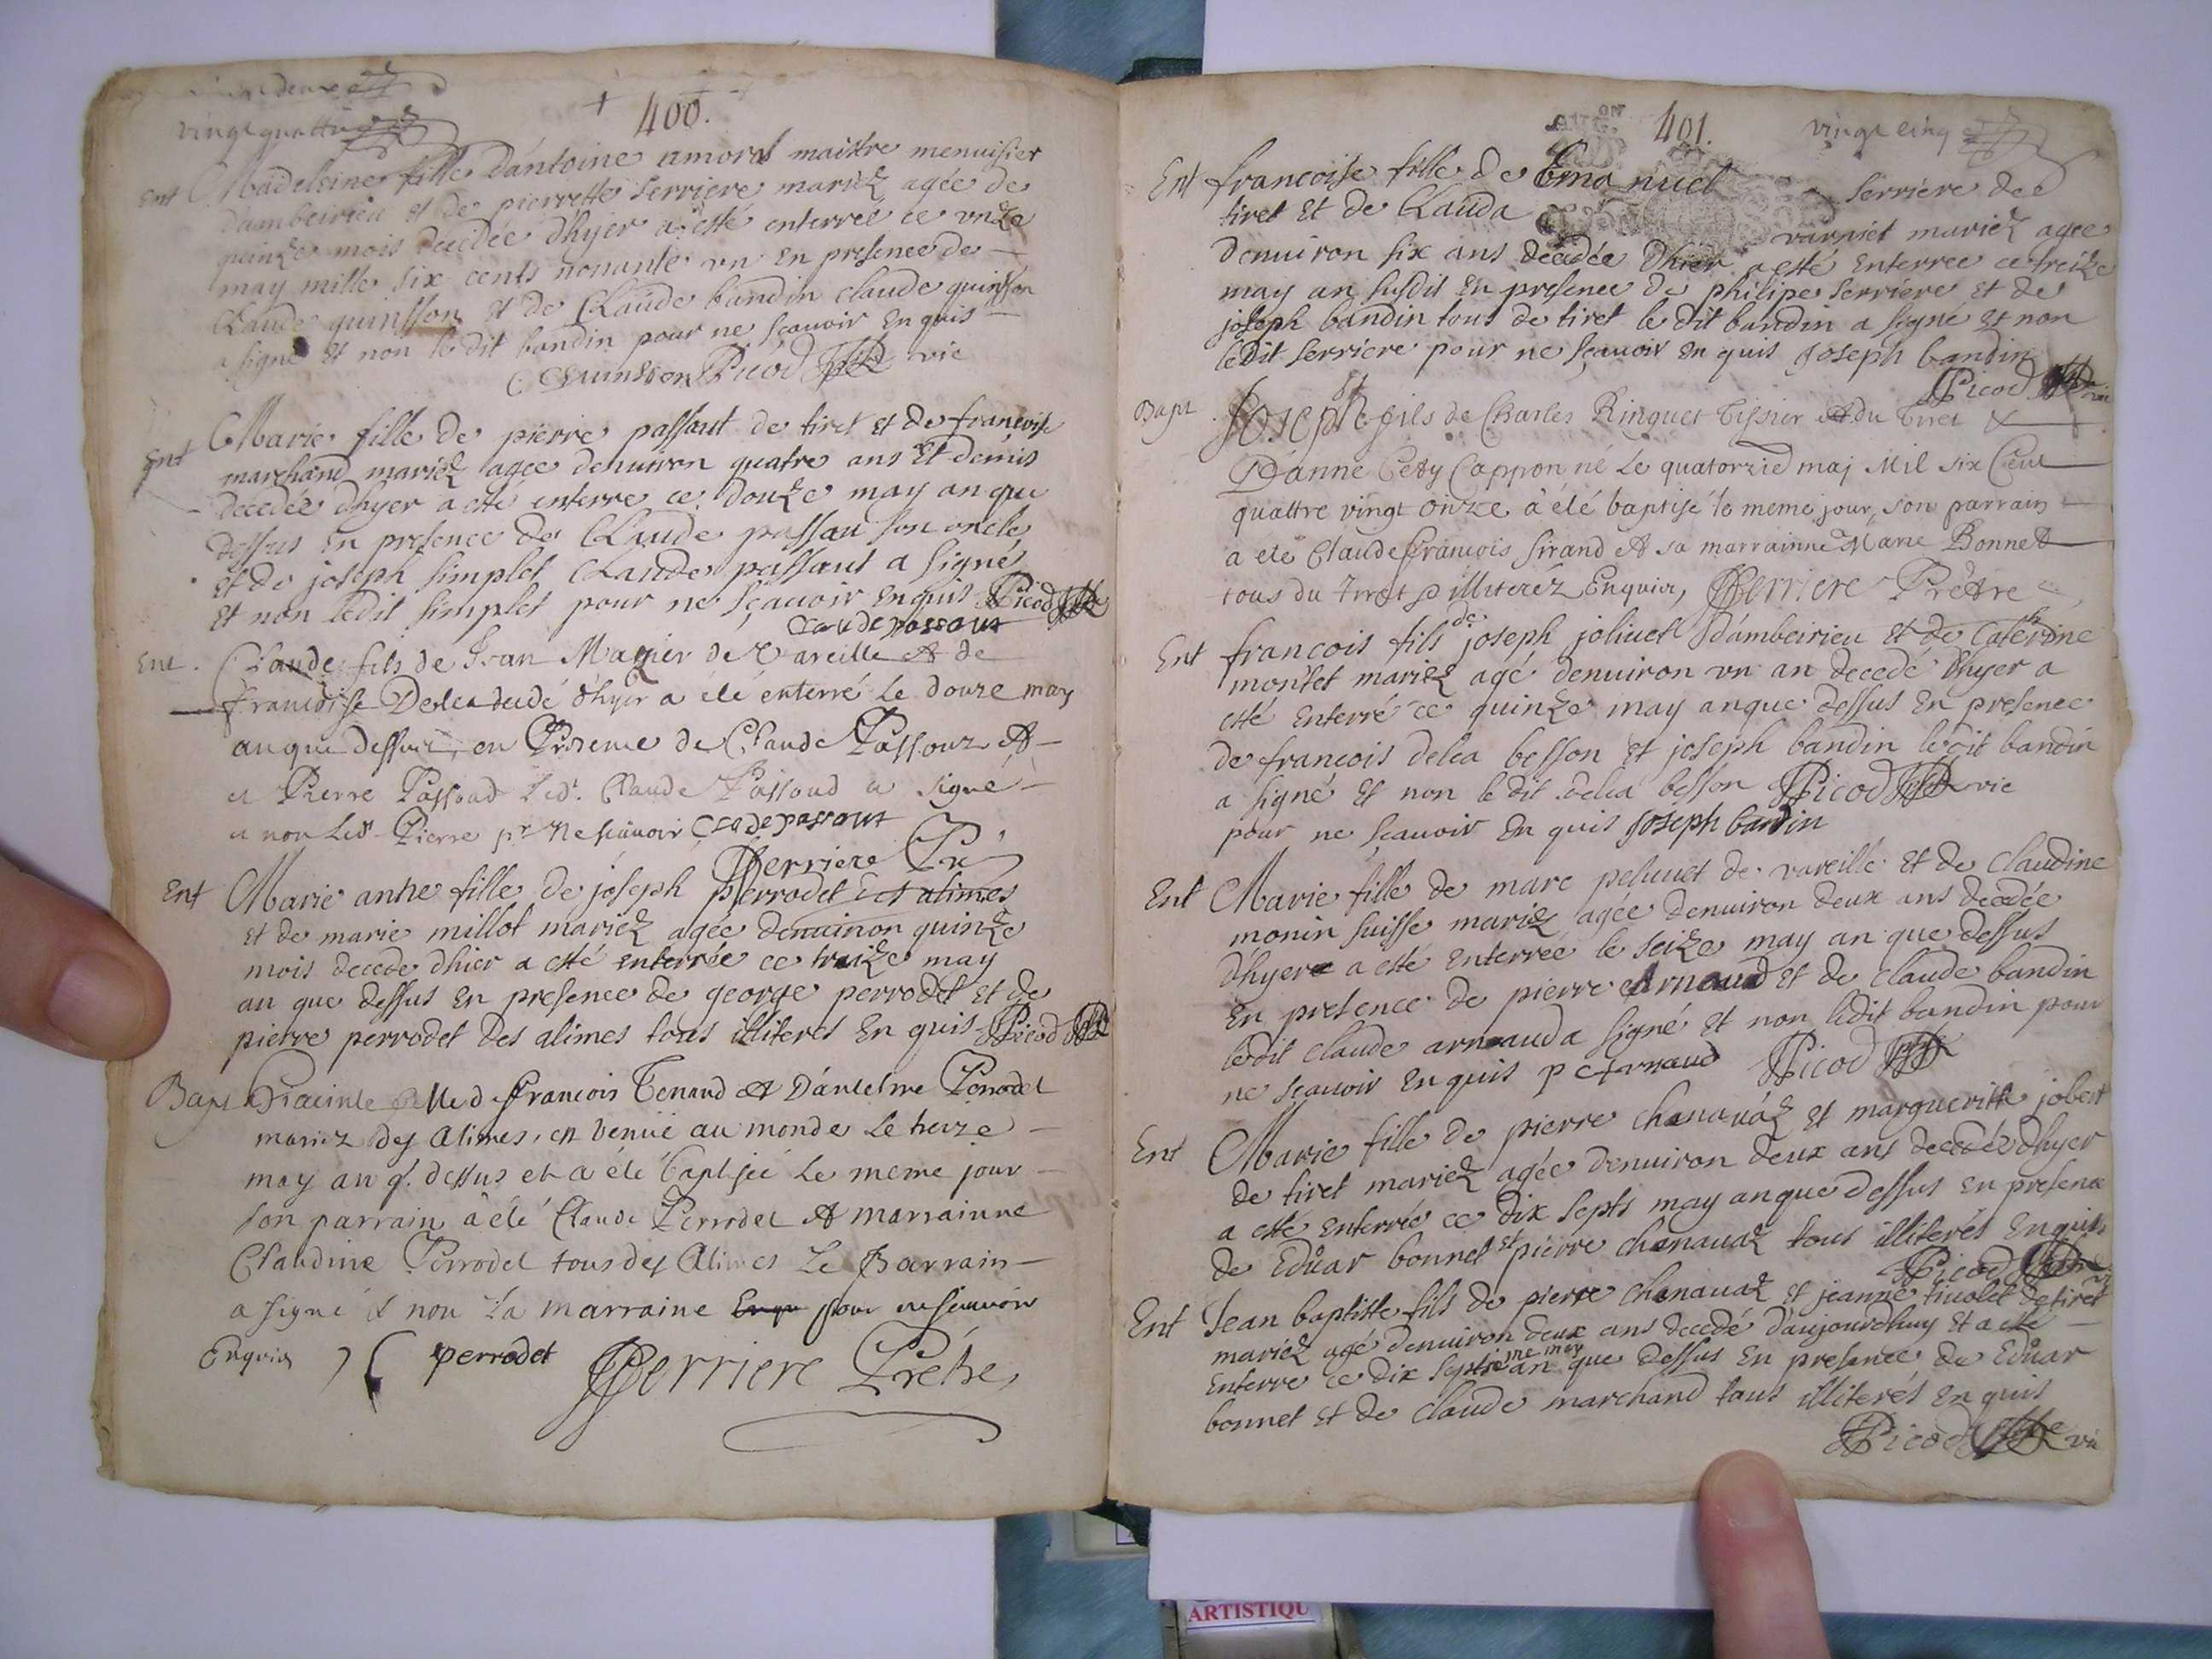 vingt quattre
400.
Ent Madeleine fille d'antoine amord maittre menuisier
dambeirieu et de pierrette serriere mariez agée de
quinze mois decidée dhyer a esté enterreé ce unze
may mille six cents nonante un en presence de
Claude quinsson et de Claude bandin claude quinson
a signé et non le dit bandin pour ne sçauoir enquis
Quinsson Picod vic
Ent Marie fille de pierre passaut de tiret et de francoise
marchand mariez agée denuiron quatre ans et demis
decedée dhyer a esté enterre ce douze may an que
dessus en presence de Claude passau son oncle
et de joseph simplet Claude passaut a signé
et non ledit simplet pour ne sçauoir enquis Picod
Claude passaut
Ent. Claude fils de Jean Magnier de Vareille et de
francoise Delea decedé d'hyer a été enterré le douze may
an que dessus, en Presence de Claude Passouz et
et Pierre Passoud led. Claude Passoud a signé
et non led. Pierre pr ne scauoir Clade passaut
Serriere
Ent Marie anne fille de joseph perrodet des alimes
et de marie millot mariez agée denuiron quinze
mois decede dhier a esté enterrée ce traize may
an que dessus en presence de george perrodet et de
pierre perrodet des alimes tous illiteres enquis Picod
Bapt Hiacinte fille de francois Tenand et D'antelme Perrodet
mariez des Alimes, est venüe au monde le treize
may an q. dessus et a été baptisée le meme jour
son parrain a été Claude Perrodet et marrainne
Claudine Perrodet tous des Alimes le Parrain
a signé et non la marraine pour ne scauoir
Enquis perrodet Serriere Prêtre
401.
vingt cinq
Ent francoise fille de Emanuel serriere de
tiret et de Clauda varniet mariez agée
denuiron six ans decidée dhier a esté enterree ce treize
may an susdit en presence de philipe serriere et de
joseph bandin tous de tiret le dit bandin a signé et non
ledit serriere pour ne sçauoir enquis Joseph bandin
Picod
Bapt Joseph fils de Charles Ringuet Tissier du Tiret &
D'anne Pety Cappon né le quatorzie maj Mil six Cent
quattre vingt onze a été baptisé le meme jour, son parrain
a eté Claude francois sirand et sa marrainne Marie Bonnet
tous du Tiret illiteréz Enquis, Serriere Prêtre
Ent francois fils de joseph joliuet d'ambeirieu et de Caterine
montet mariez agé denuiron un an decedé dhyer a
esté enterré ce quinze may an que dessus en presence
de francois delea besson et joseph bandin ledit bandin
a signé et non le dit delea besson Picod vic
pour ne sçauoir enquis Joseph bandin
Ent Marie fille de marc peluuet de vareille et de claudine
monin suisse mariez agée denuiron deux ans decedée
d'hyer a esté enterreé le seize may an que dessus
en presence de pierre Arnaud et de claude bandin
ledit claude arnaud a signé et non ledit bandin pour
ne sçauoir enquis p Arnaud Picod
Ent Marie fille de pierre chanauaz et margueritte jobert
de tiret mariez agée denuiron deux ans decedée dhyer
a esté enterrée ce dix septs may an que dessus en presence
de Eduar bonnet et pierre chanauaz tous illiterés enquis
Picod
Ent Jean baptiste fils de pierre chanauaz et jeanne tiuolet de tiret
mariez agé denuiron deux ans decedé d'aujourdhuy et a esté
enterre ce dix septieme may an que dessus en presence de Eduar
bonnet et de claude marchand tous illiterés enquis
Picod vic
ARTISTIQU